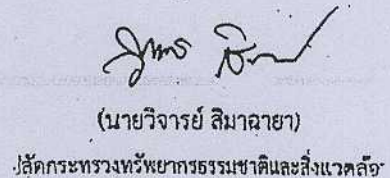 (นายวิจารย์ สิมาฉายา)
ปลัดกระทรวงทรัพยากรธรรมชาติและสิ่งแวดล้อม